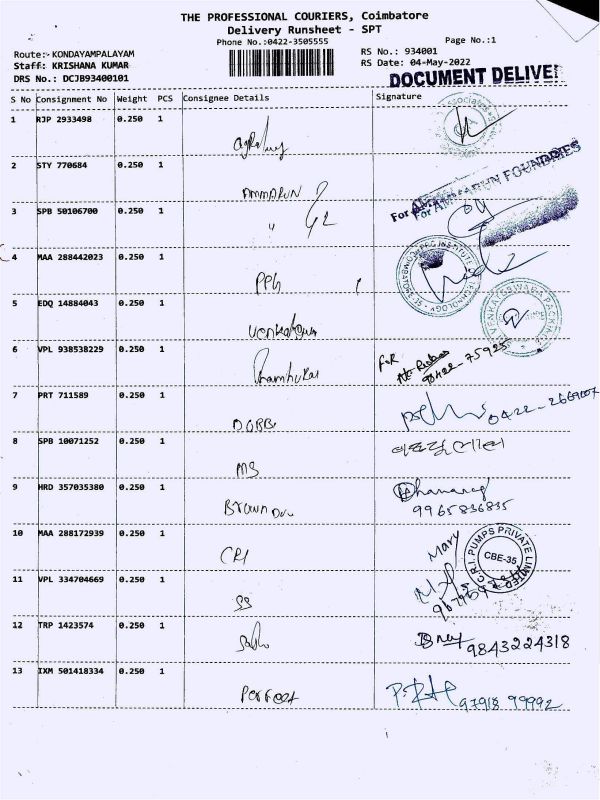 THE PROFESSIONAL COURIERS, Coimbatore
Delivery Runsheet - SPT
Phone No.:0422-3505555
Page No.:1
Route:- KONDAYAMPALAYAM
RS No.: 934001
Staff: KRISHANA KUMAR
RS Date: 04-May-2022
DRS No.: DCJB93400101
DOCUMENT DELIVE
S No Consignment No Weight PCS Consignee Details Signature
1 RJP 2933498 0.250 1
2 STY 770684 0.250 1 AMMARUN
For AMMARUN FOUNDRIES
3 SPB 50106700 0.250 1 "
4 MAA 288442023 0.250 1 PPG
5 EDQ 14884043 0.250 1
6 VPL 938538229 0.250 1
FOR
98422-75925
7 PRT 711589 0.250 1
8 SPB 10071252 0.250 1 MS
9 HRD 357035380 0.250 1 Brown
Dhanaraj
9965836835
10 MAA 288172939 0.250 1 CRI Mary
C.R.I. PUMPS PRIVATE LIMITED
CBE-35
11 VPL 334704669 0.250 1 SS
12 TRP 1423574 0.250 1 9843224318
13 IXM 501418334 0.250 1 Perfect 97918 99992